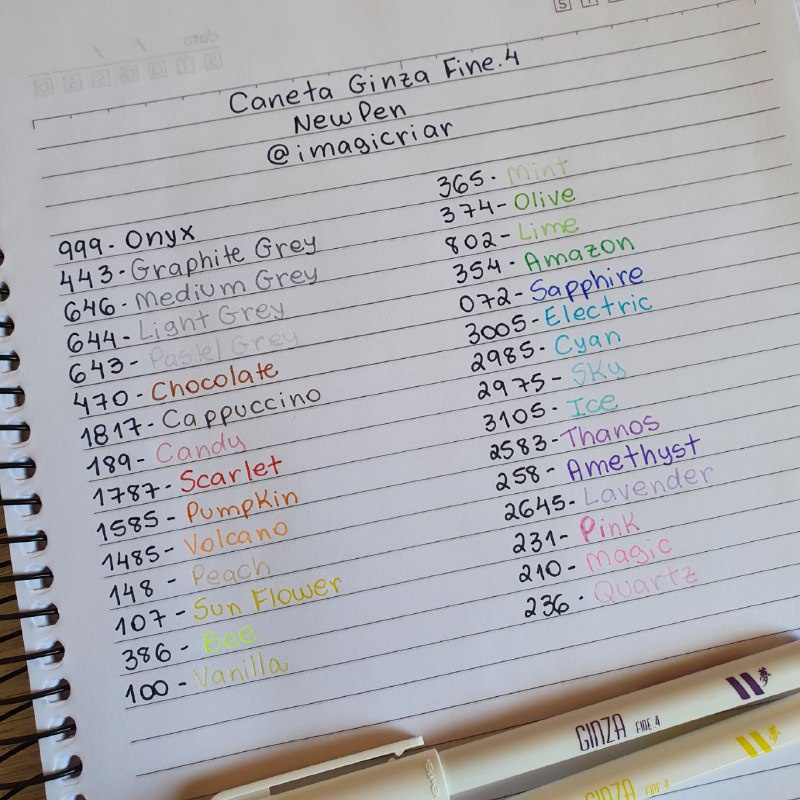 Caneta Ginza Fine.4
New Pen
@imagicriar
999- Onyx
443- Graphite Grey
646- Medium Grey
644- Light Grey
643- Pastel Grey
470- Chocolate
1817- Cappuccino
189- Candy
1787- Scarlet
1585- Pumpkin
1485- Volcano
148- Peach
107- Sun Flower
386- Bee
100- Vanilla
365- Mint
374- Olive
802- Lime
354- Amazon
072- Sapphire
3005- Electric
2985- Cyan
2975- Sky
3105- Ice
2583- Thanos
258- Amethyst
2645- Lavender
231- Pink
210- Magic
236- Quartz
GINZA FINE 4 夢
GINZA FINE 4 夢